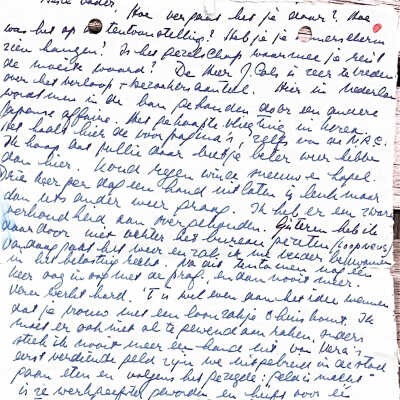 vader, Hoe vergaat het je daar? Hoe
was het op de tentoonstelling? Heb je je
zien hangen? Is het gezelschap waarmee je reist
de moeite waard? De Heer J. Cols is zeer tevreden
over het verloop + bezoekersaantal. Hier in Nederland
worden we in de ban gehouden door een andere
Japanse affaire. Het gekaapte vliegtuig in Korea.
Het haalt hier de voorpagina's, zelfs van de NRC.
Ik hoop dat jullie daar beetje beter weer hebben
dan hier. Koud regen wind sneeuw + hagel.
Drie keer per dag een hond uitlaten is leuk maar
dan iets ander weer graag. Ik heb er een zware
verkoudheid aan overgehouden. Gisteren heb ik
daardoor niet achter het bureau gezeten
vandaag gaat het weer en zal ik me verder
in het belasting recht als dit tentamen nog een
keer oog in oog met de prof. en dan nooit meer.
Vera werkt hard. 't is wel even aan het idee wennen
dat je vrouw met een loonzakje thuis komt. Ik
moet er ook niet al te gewend aan raken, anders
steek ik nooit meer een hand uit. Van Vera's
eerst verdiende geld zijn we uitgebreid in de stad
gaan eten en volgens het gezegde: geld is macht
is ze werkgeefster geworden en huurt voor